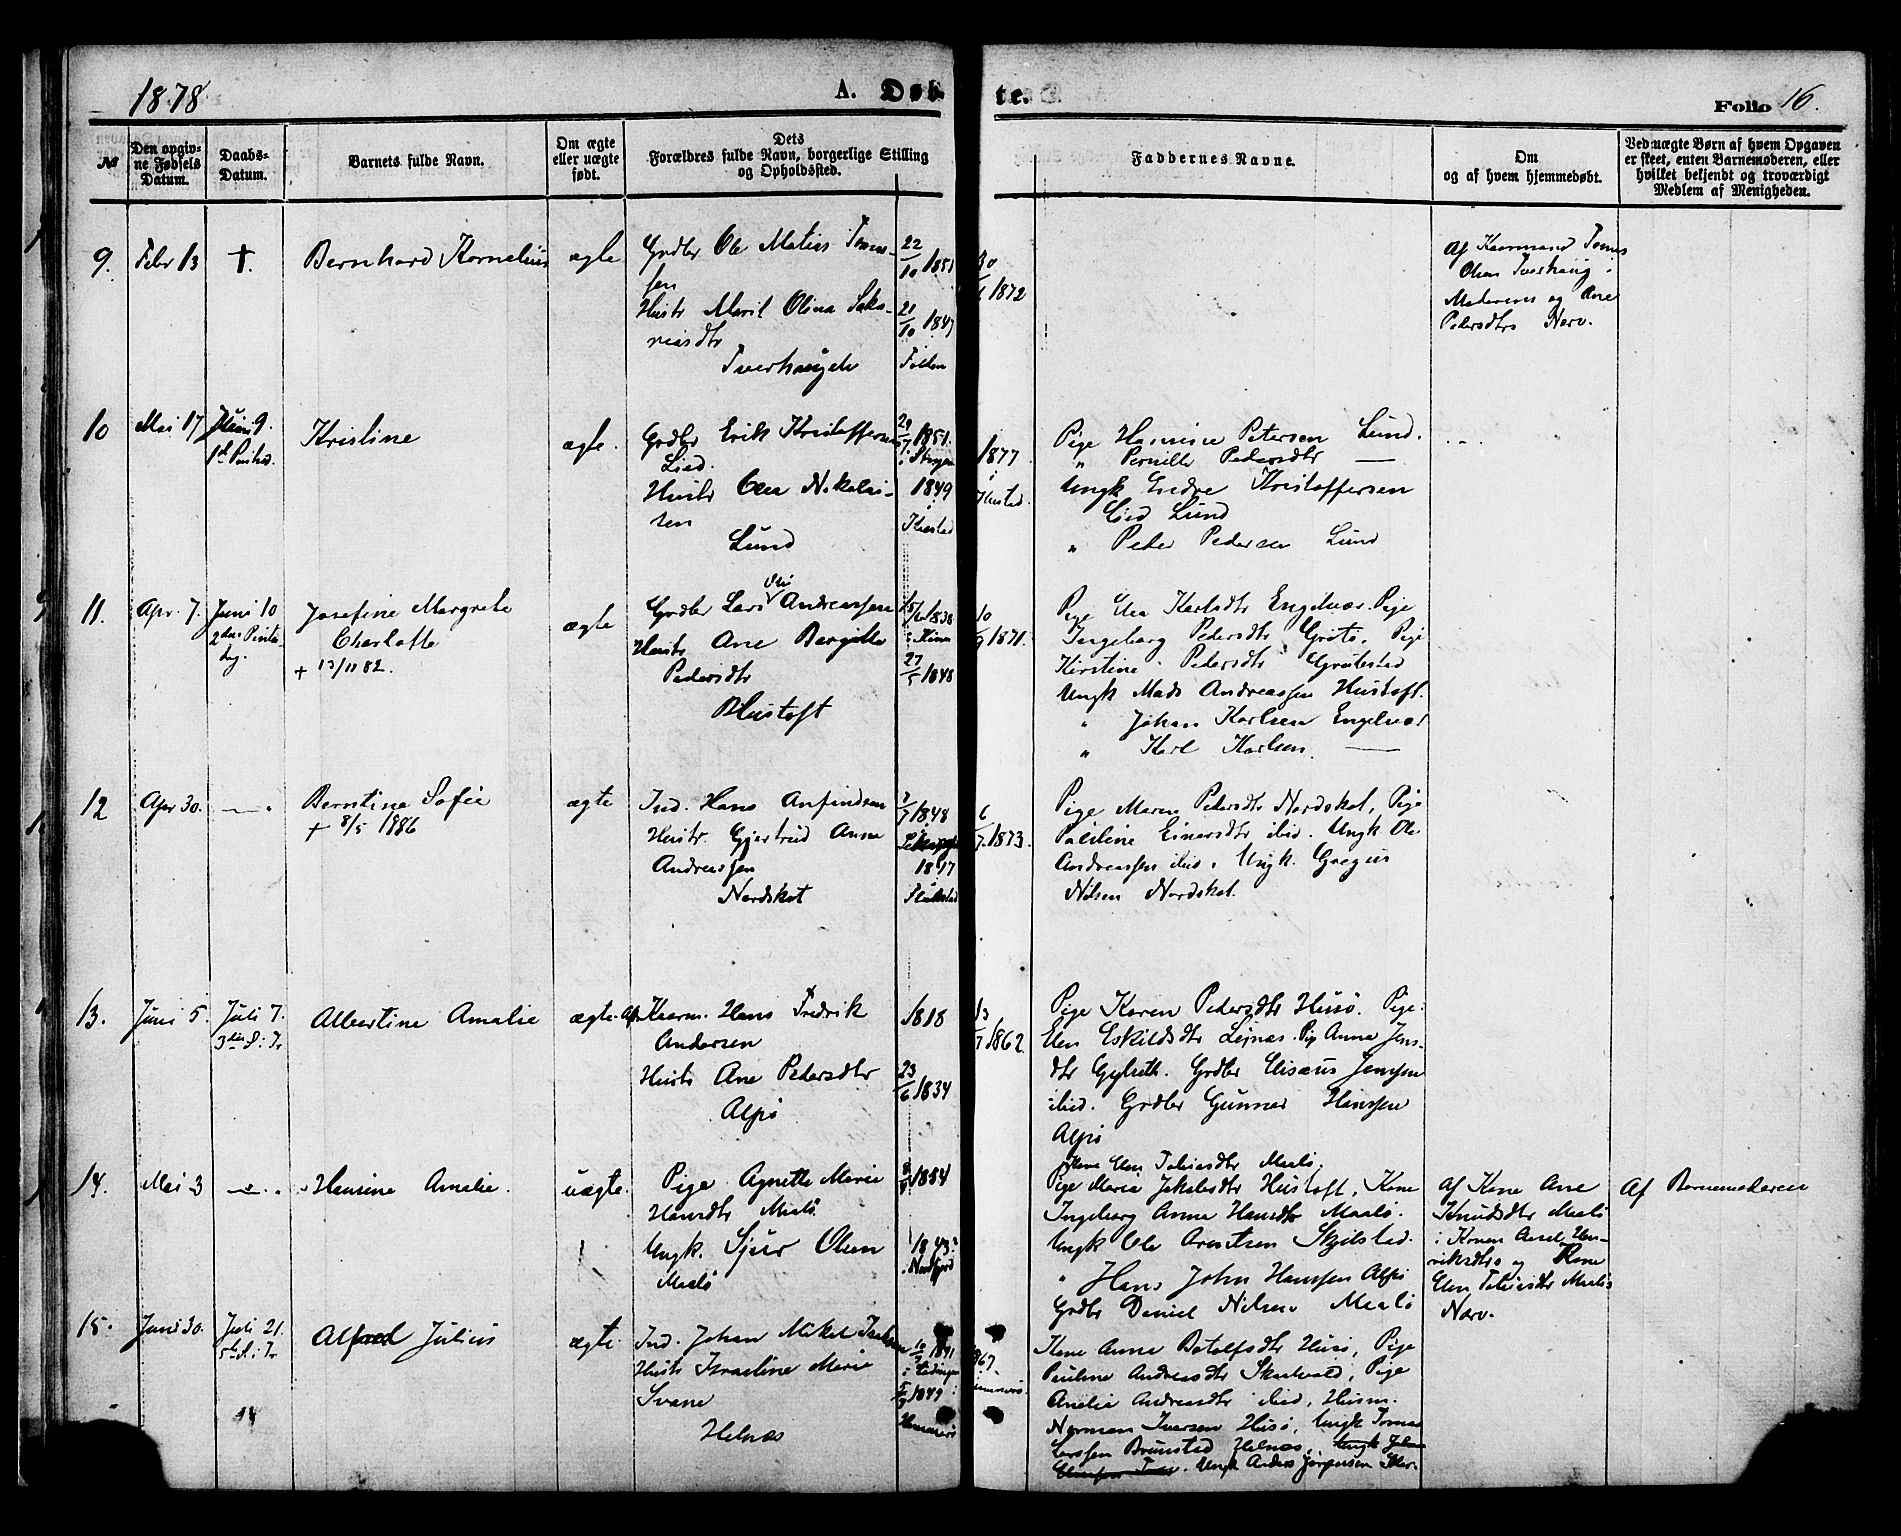 1878
A. Døb te.
Folio 16.
№
Den opgivne Fødsels Datum.
Daabs-Datum.
Barnets fulde Navn.
Om ægte eller uægte født.
Dets Forældres fulde Navn, borgerlige Stilling og Opholdssted.
Faddernes Navne.
Om og af hvem hjemmedøbt.
Ved uægte Børn af hvem Opgaven er skeet, enten Barnemoderen, eller hvilket bekjendt og troværdigt Medlem af Menigheden.
9. Febr 13 †. Bernhard Kornelius ægte
Grdbr Ole Matias Tomas-
sen
Hustr Maril Olina Saka-
riasdtr
Tverhaugdu
22/10 1851
21/10 1847
Folden
1872
Af Kaarmand Tomas
Olsen Tverhaug i
Moderens og Ane
Pedersdtrs Nærv.
10 Mai 17 Juni 9.
1ste Pintsd.
Kristine ægte.
Grdbr Erik Kristoffersen
Lied.
Hustr Elen Nikolai-
sen
Lund
1851.
i Steigen
1849
i
1877
Pige Hansine Petersen Lund.
" Pernille Pedersdtr —
Ungk Endre Kristoffersen
Lied Lund
" Peder Pedersen Lund
11. Apr. 7. Juni 10
2den Pintse-
dag.
Josefine Margrete
Charlotte
+ 13/11 82.
ægte
Grdbr Lars Andreassen
Hustr Ane Bergitte
Pedersdtr
Hustoft
1838
27/5 1848
10/9 1871.
Pige Elen Karlsdtr Engelvær. Pige
Ingeborg Pedersdtr Grøtø, Pige
Kirstine Pedersdtr Grøtestad
Ungk Mads Andreassen Hustoft.
" Johan Karlsen Engelvær
" Karl Karlsen. —
12 Apr 30. —"—.
Berntine Sofie
+ 8/5 1886
ægte
Ind. Hans Anfindsen
Hustr. Gjertrud Anna
Andreassen
Nordskot
7/7 1848
1847
6/7 1873.
Pige Maren Pedersdtr Nordskot, Pige
Pauline Einersdtr ibid. Ungk Ole
Andreassen ibid. Ungk. Gregus
Nilsen Nordskot.
13. Juni 5. Juli 7.
3die S. i Tr
Albertine Amalie ægte.
Kaarm. Hans Fredrik
Andersen
Hustr Ane Pedersdtr
Alpø
1818
23/6 1834
13/7 1862.
Pige Karen Pedersdtr Husø. Pige
Elen Eskildsdtr Leines. Pige Anna Jens-
dtr Gylseth. Grdbr Elisæus Jenssen
ibid. Grdbr Gunnar Hanssen
Alpø
14. Mai 3 —"—.
Hansine Amalie. uægte.
Pige Agnette Marie
Hansdtr Maalø
Ungk. Sjur Olsen
Maalø
1854
1843
i Nordfjord
Kone Elen Tobiasdtr Maalø.
Pige Maria Jakobsdtr Hustoft, Kone
Ingeborg Anna Hansdtr Maalø.
Ungk Ole Arntsen Skjelstad.
" Hans John Hanssen Alpø
Grdbr Daniel Nilsen Maalø
Af Kone Ane
Knudsdtr Maalø
i Konen Hen-
riksdtrs og Kone
Elen Tobiasdtr Maaløs
Nærv.
Af Barnemoderen
15. Juni 30. Juli 21.
5te S. i Tr
Alfred Julius ægte.
Ind. Johan Mikal
Hustr Israeline Marie
Svane
Helnæs
1841
i Lødingen
1849 i
Hammerø
Kone Anna Botolfsdtr Husø, Pige
Pauline Andreasdtr Skutvold, Pige
Amalia Andreasdtr ibid, Husm.
Norman Iversen Husø, Ungk Tomas
Larssen Brunsted Helnæs,
Ungk Anders Jørgensen